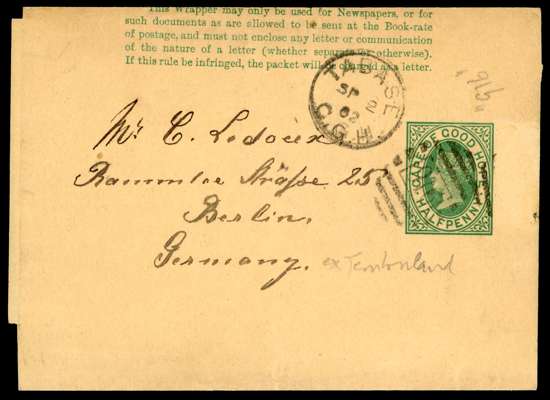 This Wrapper may only be used for Newspapers, or for
such documents as are allowed to be sent at the Book-rate
of postage, and must not enclose any letter or communication
of the nature of a letter (whether separate or otherwise).
If this rule be infringed, the packet will be charged as a letter.
TABASE
SP 2
02
C.G.H.
Mr C. Ledoux
Strasse 25
Berlin,
Germany.
ex Tembuland
CAPE OF GOOD HOPE
HALFPENNY